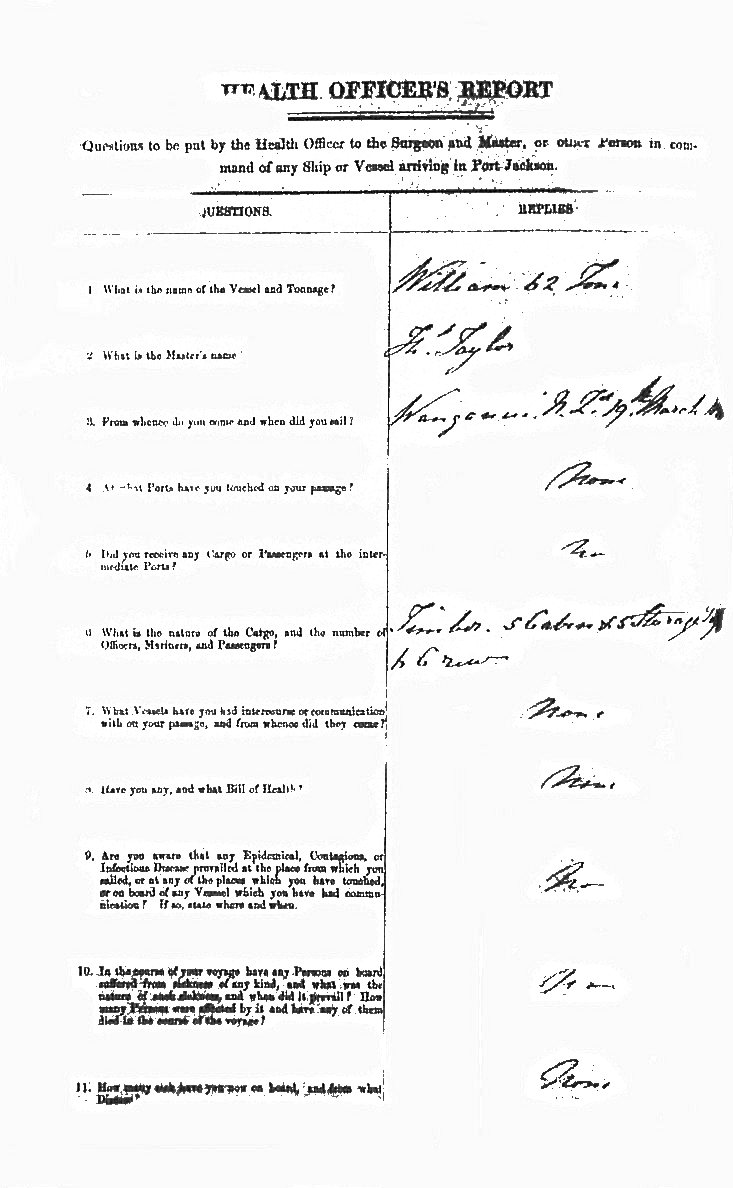 HEALTH OFFICER'S REPORT
Questions to be put by the Health Officer to the Surgeon and Master, or other Person in com-
mand of any Ship or Vessel arriving in Port Jackson.
QUESTIONS. REPLIES
1 What is the name of the Vessel and Tonnage? William 62 Tons
2 What is the Master's name? Thos. Taylor
3. From whence do you come and when did you sail? Wanganui N.Zd. 19th March
4 At what Ports have you touched on your passage? None
5 Did you receive any Cargo or Passengers at the inter-
mediate Ports? No
6 What is the nature of the Cargo, and the number of Timber. 5 Cabin & 5 Storage
Officers, Mariners, and Passengers? 6 Crew
7. What Vessels have you had intercourse or communication
with on your passage, and from whence did they come? None
8. Have you any, and what Bill of Health? None
9. Are you aware that any Epidemical, Contagious, or
Infectious Disease prevailed at the place from which you
sailed, or at any of the places which you have touched,
or on board of any Vessel which you have had commu-
nication? If so, state where and when. No
10. In the course of your voyage have any Persons on board
suffered from sickness of any kind, and what was the
nature of such sickness, and when did it prevail? How
many Persons were affected by it and have any of them
died in the course of the voyage? No
11. How many sick have you now on board, and from what
Disease? None